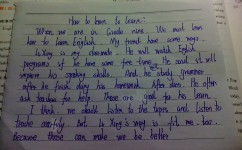 How to learn to learn?
When we are in Grade nine. We must learn
how to learn English. My friends have some ways.
Li Xing is my classmate. He will watch English
programs if he have some free time. He said it will
improve his speaking skills. And he study grammar
after he finish doing his homework. Also does. He often
ask teachers for help. These are good for his learn.
I think we should listen to the tapes and listen to
teacher carefully. But Li Xing's way is fit me too.
Because these can make me be better.